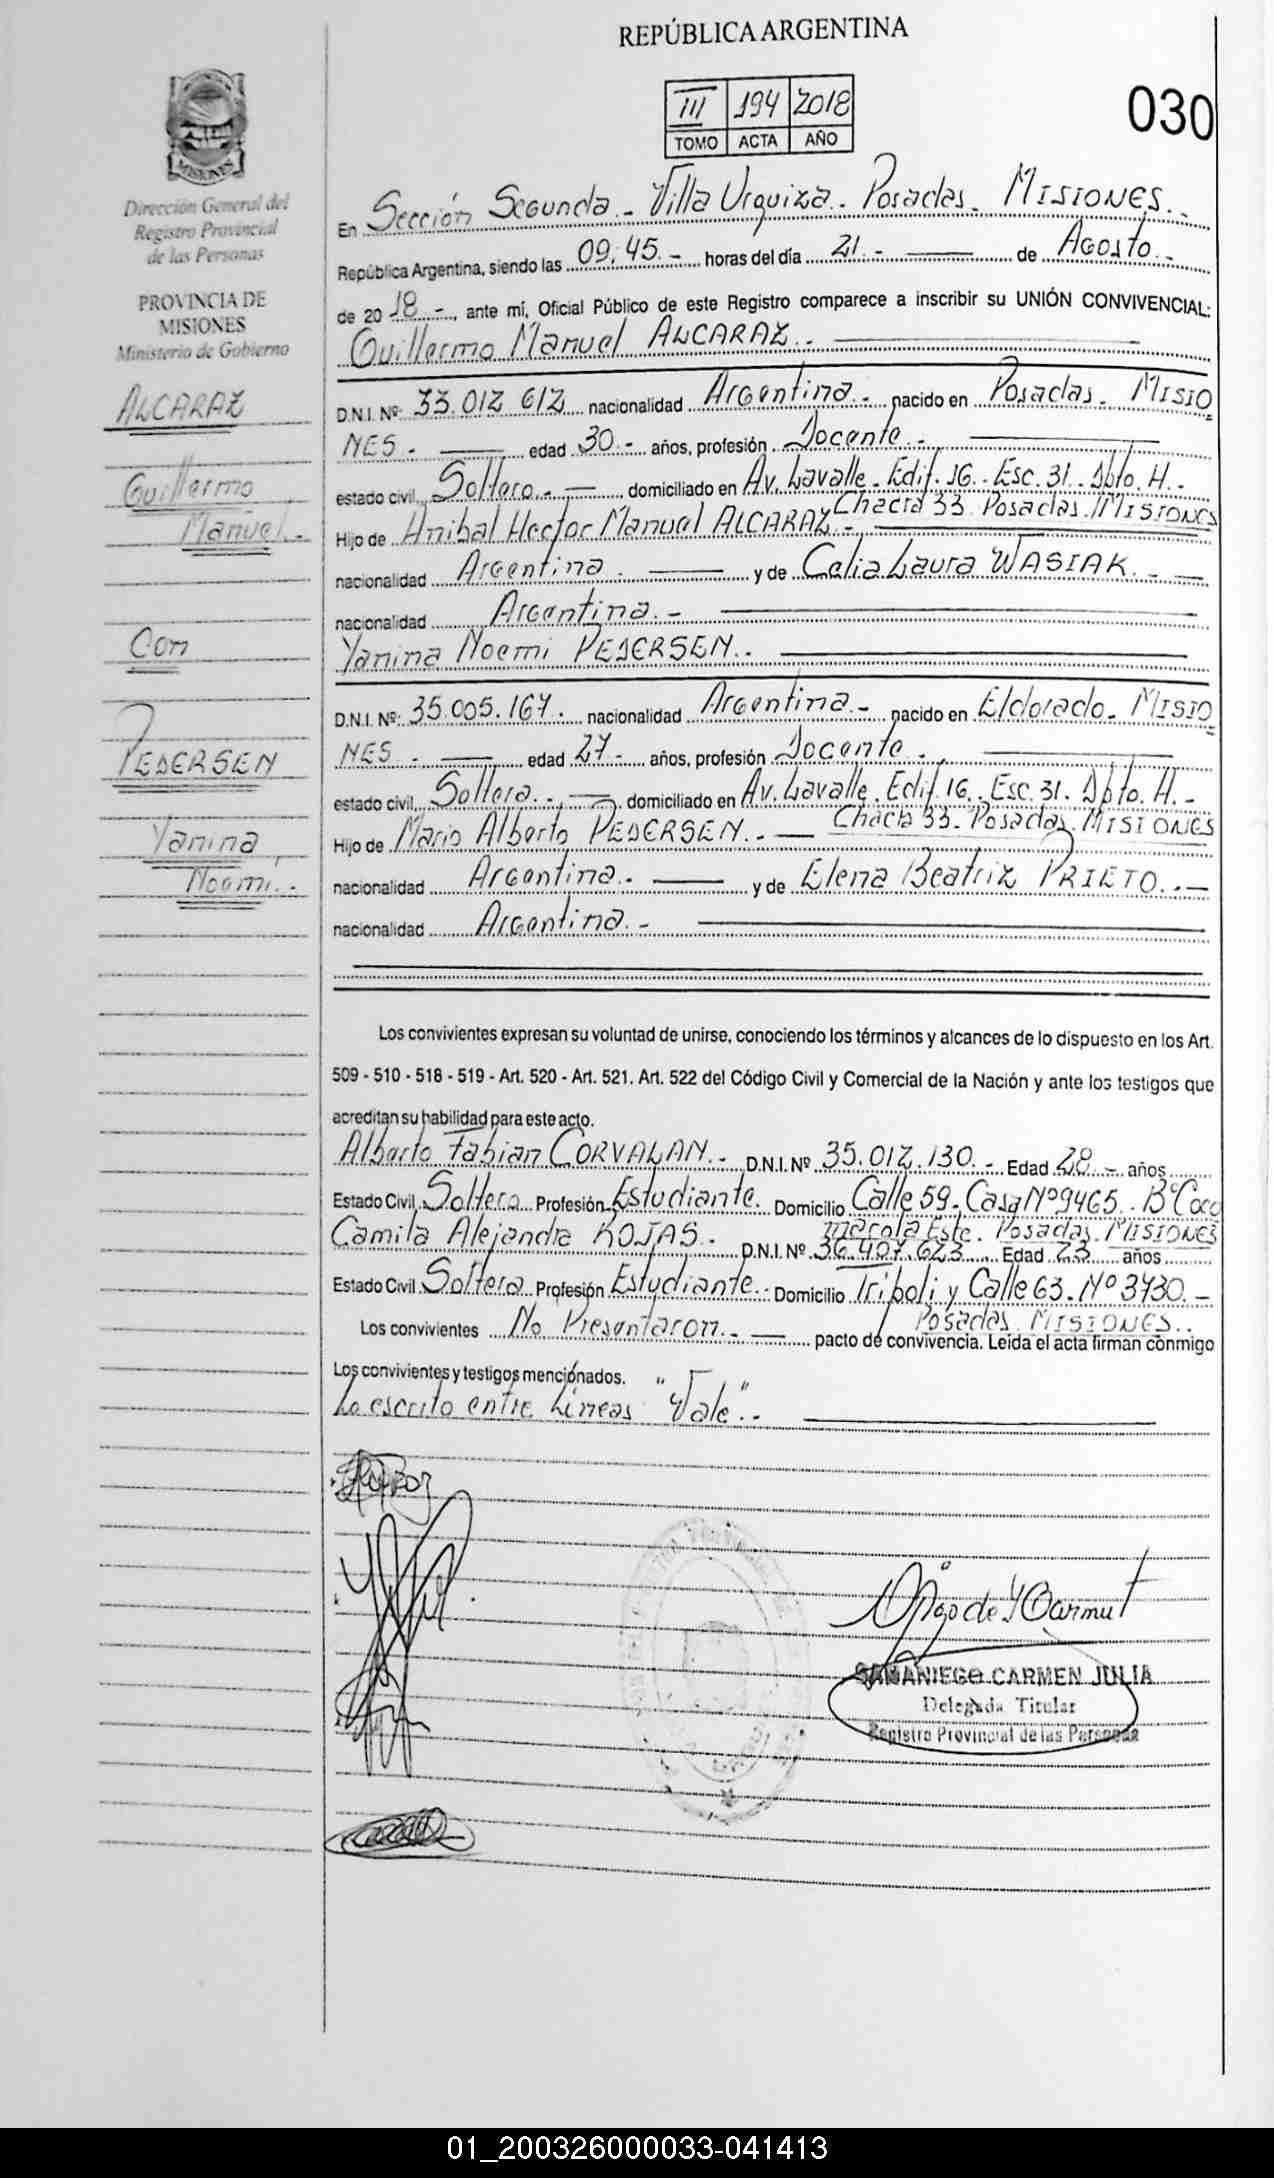 REPÚBLICA ARGENTINA
III 194 2018
TOMO ACTA AÑO
030
MISIONES
Dirección General del
Registro Provincial
de las Personas
PROVINCIA DE
MISIONES
Ministerio de Gobierno
ALCARAZ
Guillermo
Manuel.-
Con
PEDERSEN
Yanina
Noemi.-
En Sección Segunda - Villa Urquiza - Posadas - MISIONES.-
República Argentina, siendo las 09,45.- horas del día 21.- de Agosto.-
de 2018.-, ante mí, Oficial Público de este Registro comparece a inscribir su UNIÓN CONVIVENCIAL:
Guillermo Manuel ALCARAZ.-
D.N.I. Nº: 33.012 612 nacionalidad Argentina.- nacido en Posadas - MISIO
NES.- edad 30.- años, profesión Docente.-
estado civil Soltero.- domiciliado en Av. Lavalle - Edif. 16 - Esc. 31 - Dpto. H.-
Chacra 33 - Posadas. MISIONES
Hijo de Anibal Hector Manuel ALCARAZ.-
nacionalidad Argentina.- y de Celia Laura WASIAK.-
nacionalidad Argentina.-
Yanina Noemi PEDERSEN.-
D.N.I. Nº: 35.005.167. nacionalidad Argentina.- nacido en Eldorado - MISIO
NES.- edad 27.- años, profesión Docente.-
estado civil Soltera.- domiciliado en Av. Lavalle. Edif. 16. Esc. 31. Dpto. H.-
Chacra 33 - Posadas. MISIONES
Hijo de Mario Alberto PEDERSEN.-
nacionalidad Argentina.- y de Elena Beatriz PRIETO.-
nacionalidad Argentina.-
Los convivientes expresan su voluntad de unirse, conociendo los términos y alcances de lo dispuesto en los Art.
509 - 510 - 518 - 519 - Art. 520 - Art. 521. Art. 522 del Código Civil y Comercial de la Nación y ante los testigos que
acreditan su habilidad para este acto.
Alberto Fabian CORVALAN.- D.N.I. Nº 35.012.130.- Edad 28.- años
Estado Civil Soltero Profesión Estudiante. Domicilio Calle 59 - Casa Nº 9465 - Bº Coco
marola Este. Posadas. MISIONES
Camila Alejandra ROJAS.- D.N.I. Nº 36.407.623 Edad 23 años
Estado Civil Soltera Profesión Estudiante.- Domicilio Tripoli y Calle 63. Nº 3730.-
Posadas MISIONES.-
Los convivientes No Presentaron.- pacto de convivencia. Leída el acta firman conmigo
Los convivientes y testigos mencionados.
Lo escrito entre Lineas "Vale".-
SAMANIEGO CARMEN JULIA
Delegada Titular
Registro Provincial de las Personas
01_200326000033-041413